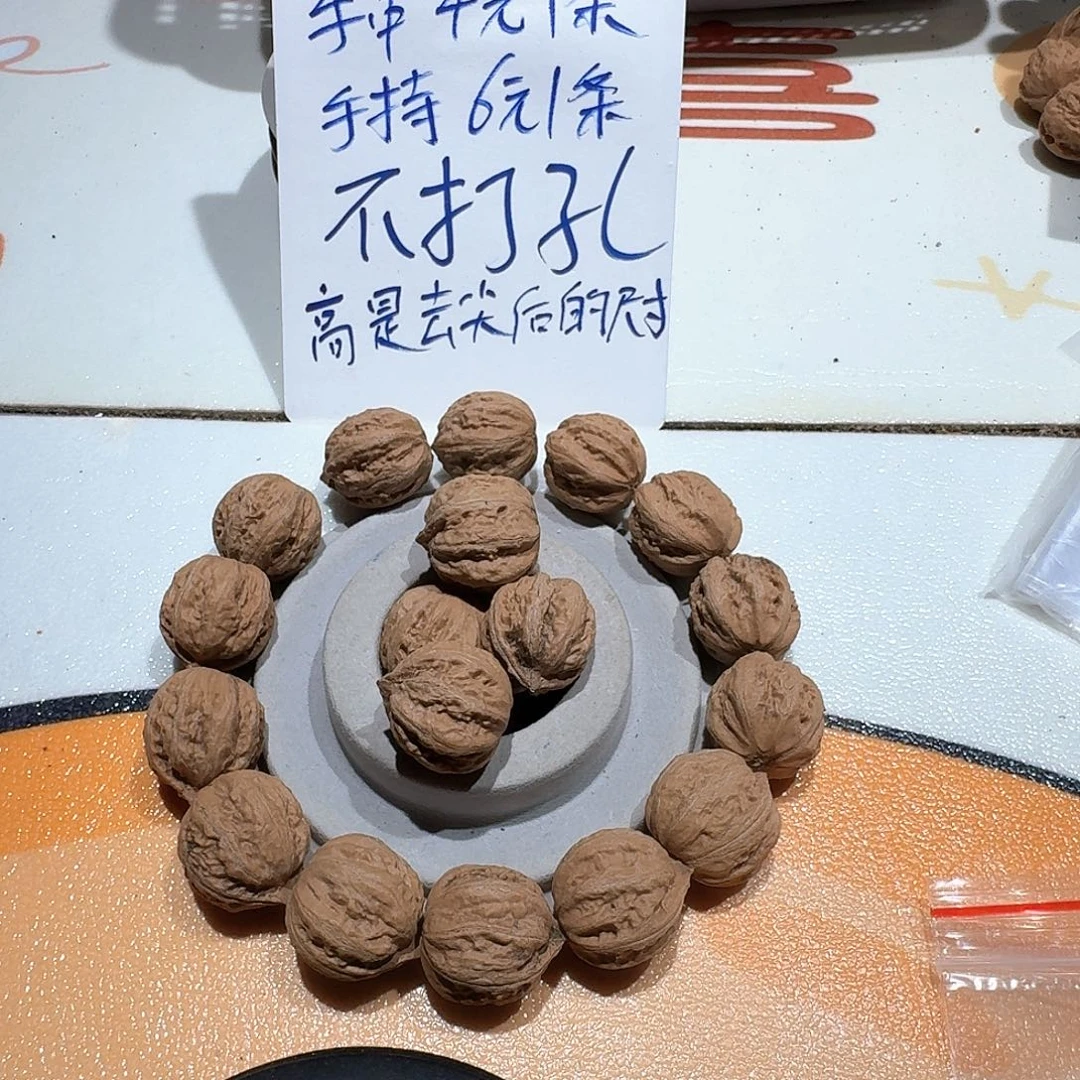 手串4元1条
手持6元1条
不打孔
高是去尖后的尺寸